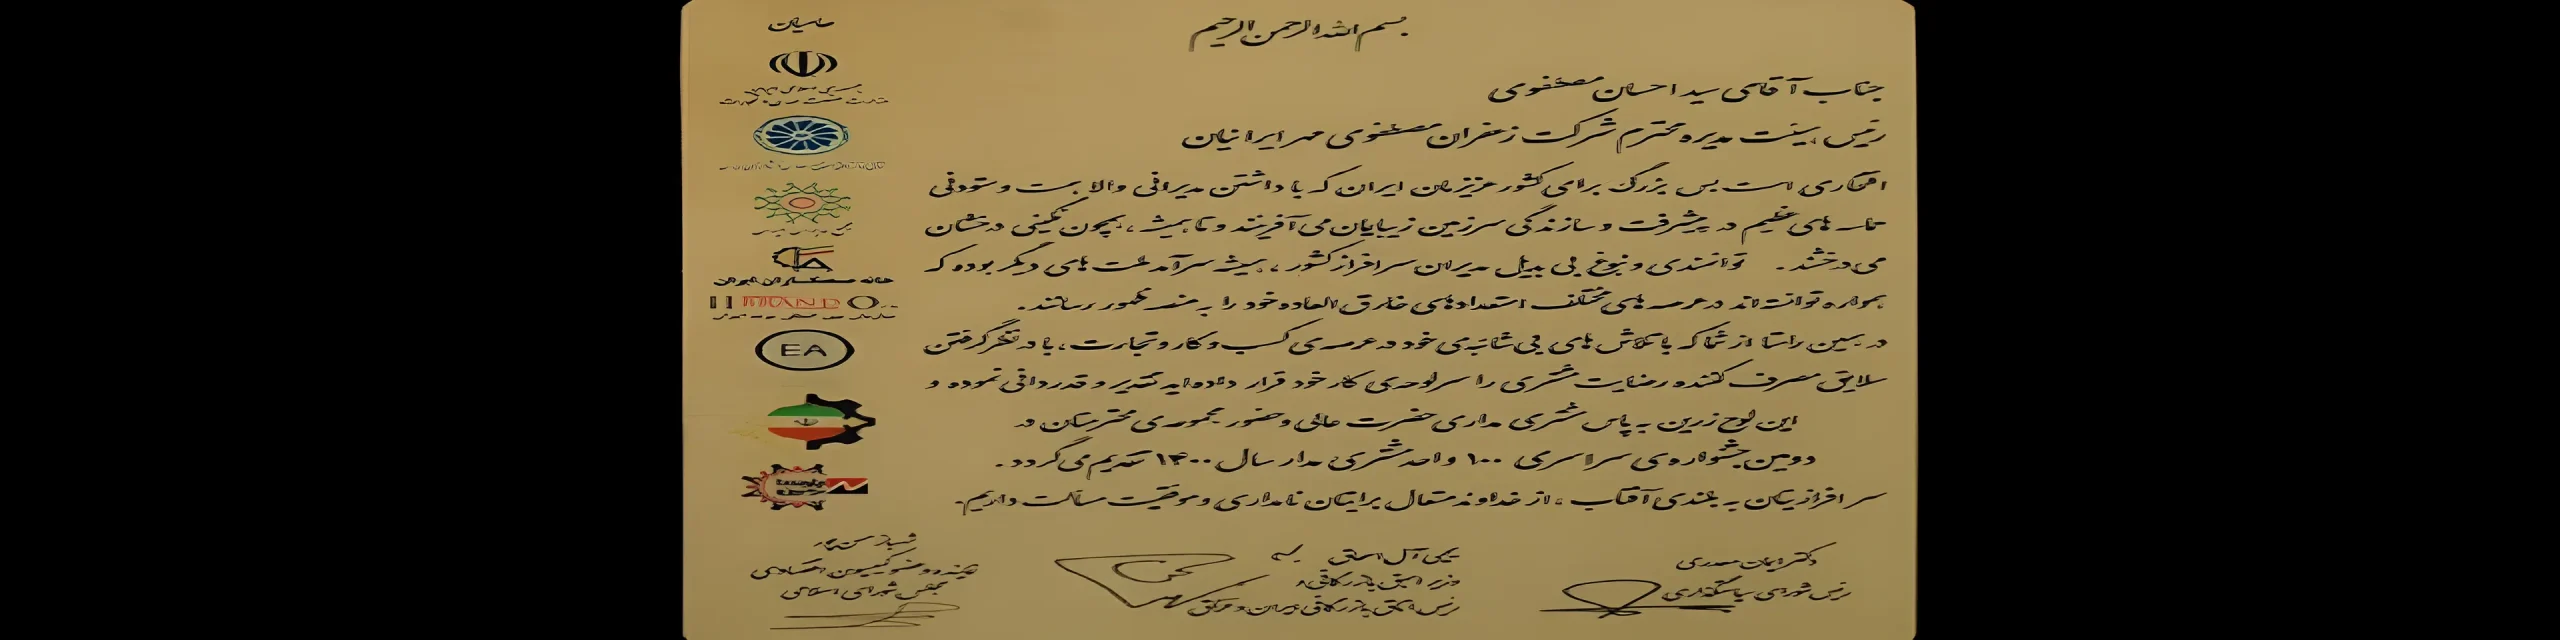 بسم الله الرحمن الرحیم
جناب آقای سید احسان مصطفوی
رئیس هیئت مدیره محترم شرکت زعفران مصطفوی مهر ایرانیان
افتخاری است بس بزرگ برای کشور عزیزمان ایران که با داشتن مدیرانی والا همت و ستودنی
حماسه های عظیم در پیشرفت و سازندگی سرزمین زیبایمان می آفرینند و تا همیشه، همچون نگینی درخشان
می درخشند. توانمندی و نبوغ بی بدیل مدیران سرافراز کشور، همیشه سرآمد ملت های دیگر بوده که
همواره توانسته اند در عرصه های مختلف استعدادهای خارق العاده خود را به منصه ظهور رسانند.
در همین راستا از شما که با تلاش های بی شائبه ی خود در عرصه ی کسب و کار و تجارت، با در نظر گرفتن
سلایق مصرف کننده رضایت مشتری را سرلوحه ی کار خود قرار داده اید تقدیر و قدردانی نموده و
این لوح زرین به پاس مشتری مداری حضرت عالی و حضور مجموعه ی محترمتان در
دومین جشنواره ی سراسری ۱۰۰ واحد مشتری مدار سال ۱۴۰۰ تقدیم می گردد.
سرافرازیتان به بلندی آفتاب، از خداوند متعال برایتان نامداری و موفقیت مسئلت داریم.
حامیان
خانه صنعتگران ایران
BRAND
EA
دکتر ایمان
رئیس شورای سیاستگذاری
یحیی آل اسحاق
وزیر اسبق بازرگانی
رئیس اتاق بازرگانی ایران و عراق
شهباز حسن پور
نماینده و عضو کمیسیون اقتصادی
مجلس شورای اسلامی